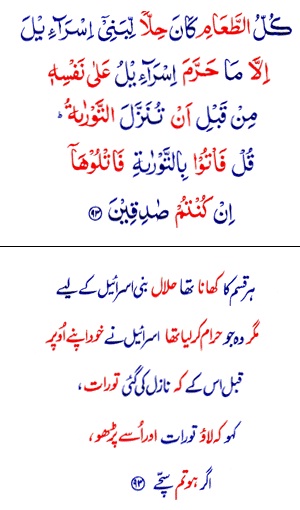 كُلُّ الطَّعَامِ كَانَ حِلًّا لِّبَنِيْۤ اِسْرَآءِيْلَ
اِلَّا مَا حَرَّمَ اِسْرَآءِيْلُ عَلٰى نَفْسِهٖ
مِنْ قَبْلِ اَنْ تُنَزَّلَ التَّوْرٰىةُ ؕ
قُلْ فَاْتُوْا بِالتَّوْرٰىةِ فَاتْلُوْهَاۤ
اِنْ كُنْتُمْ صٰدِقِيْنَ ﴿۹۳﴾
ہر قسم کا کھانا تھا حلال بنی اسرائیل کے لیے
مگر وہ جو حرام کر لیا تھا اسرائیل نے خود اپنے اُوپر
قبل اس کے کہ نازل کی گئی تورات،
کہو کہ لاؤ تورات اور اُسے پڑھو،
اگر ہو تم سچّے ﴿۹۳﴾